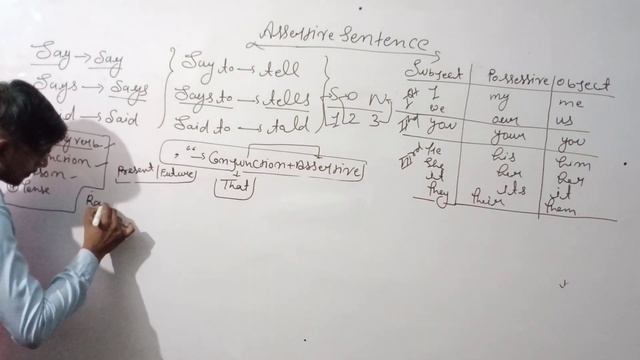 Assertive Sentence
Say → Say
Says → Says
Said
Say to → tell
Says to → tells
Said to → told
S O N
1 2 3
, " → Conjunction + Assertive
That
Present / Future
verb
Tense
Subject Possessive Object
Ist I my me
we our us
IInd you your you
IIIrd He his him
She her her
it its it
they their them